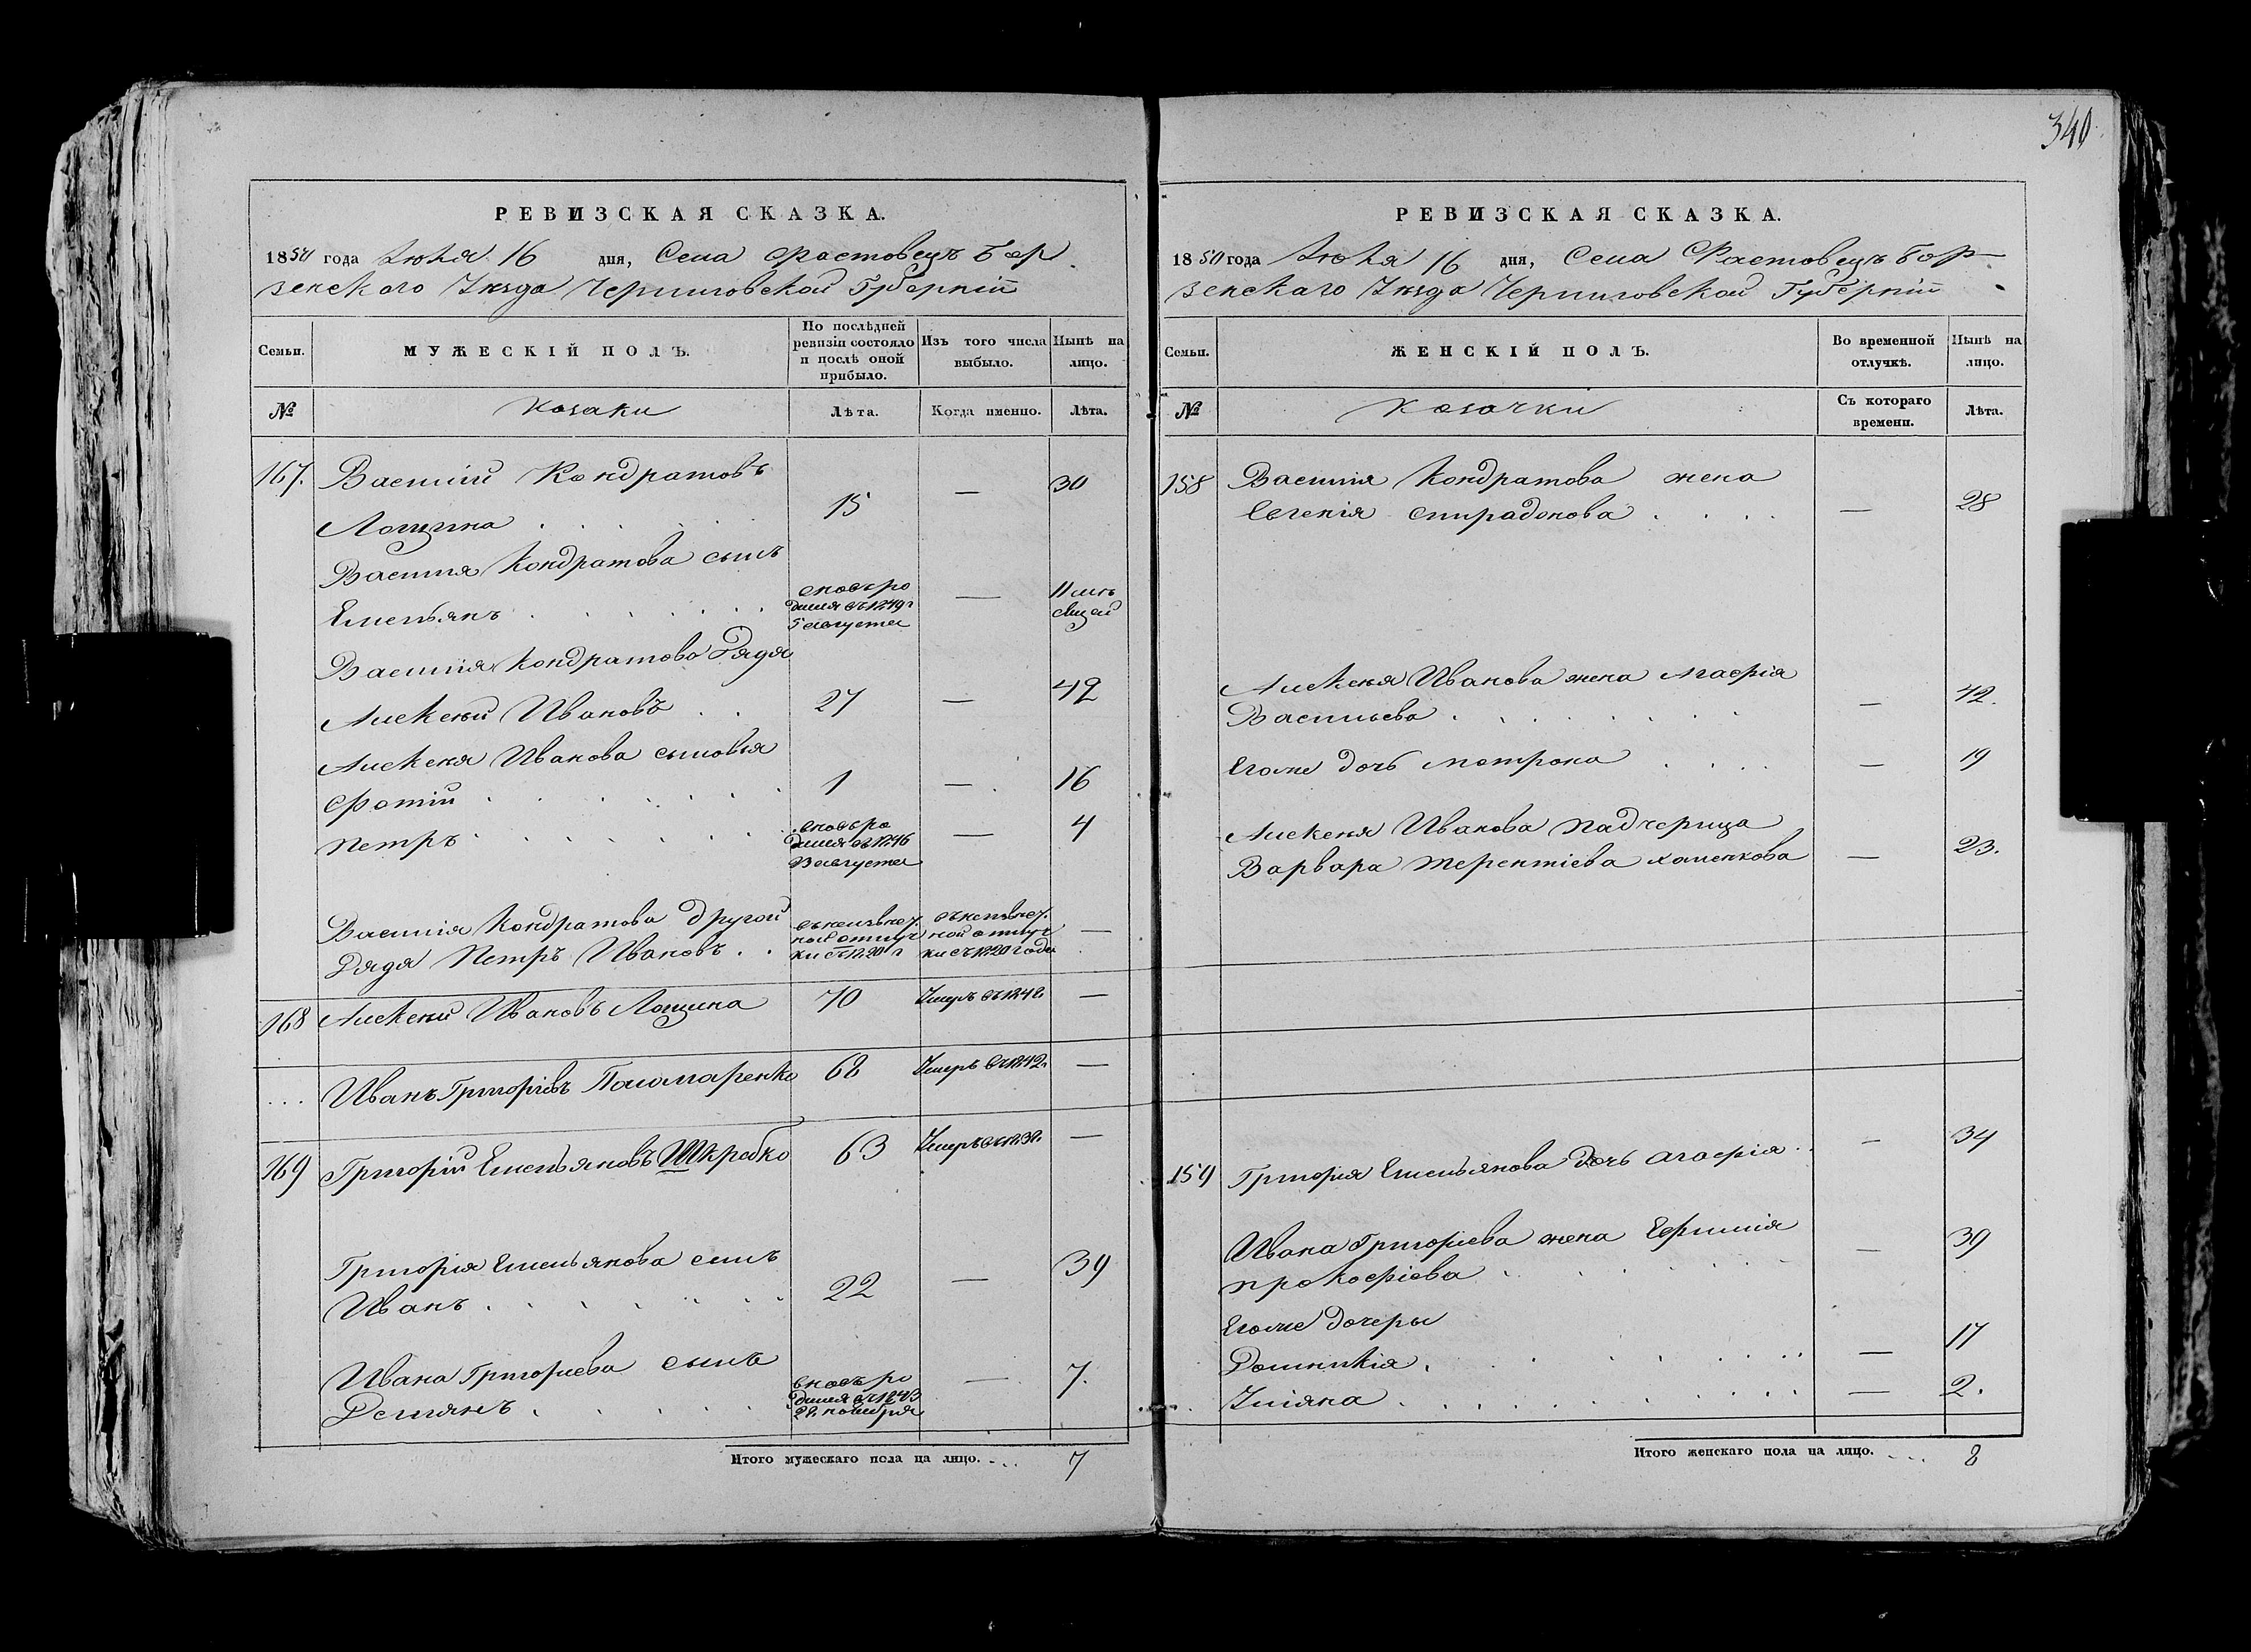 340
РЕВИЗСКАЯ СКАЗКА.
1850 года Июля 16 дня, Села Фастовецъ Бор
зенского Уѣзда Черниговской Губерніи
Семьи.
МУЖЕСКІЙ ПОЛЪ.
По послѣдней ревизіи состояло и послѣ оной прибыло.
Изъ того числа выбыло.
Нынѣ на лицо.
№
Козаки
Лѣта.
Когда именно.
Лѣта.
167. Василій Кондратовъ
Лощина 15 — 30
Василія Кондратова сынъ
Емельянъ
вновь ро
дился въ 1849 г
5 августа
—
11 мѣ
сяцей
Василія Кондратова Дядя
Алексѣй Ивановъ 27 — 42
Алексѣя Иванова сыновья
Фотій 1 — 16
Петръ
вновь ро
дился въ 1846
3 августа
— 4
Василія Кондратова другой
Дядя Петръ Ивановъ
ной отлуч
ки съ 1820 г
ной отлуч
ки съ 1820 года
—
168 Алексѣй Ивановъ Лощина 70 Умеръ въ 1842. —
... Иванъ Григоріевъ Поломаренко 68 Умеръ въ 1842. —
169 Григорій Емельяновъ Шкребко 63 Умеръ въ 1838. —
Григорія Емельянова сынъ
Иванъ 22 — 39
Ивана Григориева сынъ
Демянъ
вновь ро
дился въ 1843
22 ноября
— 7.
Итого мужескаго пола на лицо. 7
РЕВИЗСКАЯ СКАЗКА.
1850 года Июля 16 дня, Села Фастовецъ Бор
зенскаго Уѣзда Черниговской Губерніи
Семьи.
ЖЕНСКІЙ ПОЛЪ.
Во временной отлучкѣ.
Нынѣ на лицо.
№
Козачки
Съ котораго времени.
Лѣта.
158 Василія Кондратова жена
Евгенія Спирадонова — 28
Алексѣя Иванова жена Мафрія
Васильева — 42.
Егоже дочь Мотрона — 19
Алексѣя Иванова Падчерица
Варвара Терентіева Хоменкова — 23.
159 Григорія Емельянова дочь Агафрія — 34
Ивана Григориева жена Ефимія
Прокофіева — 39
Егоже дочеры
Домникія — 17
Уліяна — 2.
Итого женскаго пола на лицо. 8